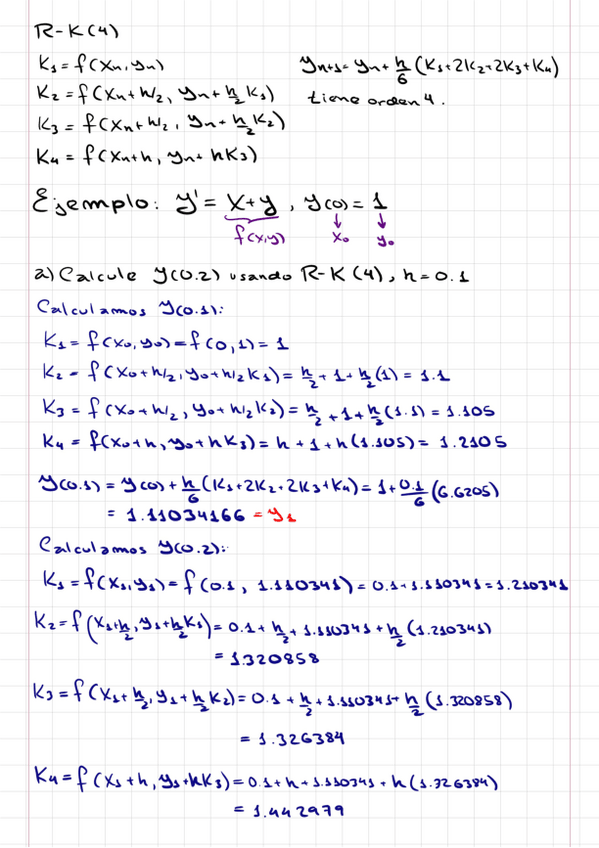 R-K(4)
K₁ = f(xn, yn)    yn+1 = yn + h/6 (K₁+2K₂+2K₃+K₄)
K₂ = f(xn+h/2, yn+h/2 K₁)    tiene orden 4.
K₃ = f(xn+h/2, yn+h/2 K₂)
K₄ = f(xn+h, yn+hK₃)
Ejemplo: y' = x+y, y(0) = 1
f(x,y)    x₀    y₀
a) Calcule y(0.2) usando R-K(4), h=0.1
Calculamos y(0.1):
K₁ = f(x₀, y₀) = f(0,1) = 1
K₂ = f(x₀+h/2, y₀+h/2 K₁) = h/2 + 1 + h/2 (1) = 1.1
K₃ = f(x₀+h/2, y₀+h/2 K₂) = h/2 + 1 + h/2 (1.1) = 1.105
K₄ = f(x₀+h, y₀+hK₃) = h + 1 + h(1.105) = 1.2105
y(0.1) = y(0) + h/6 (K₁+2K₂+2K₃+K₄) = 1 + 0.1/6 (6.6205)
= 1.11034166 = y₁
Calculamos y(0.2):
K₁ = f(x₁, y₁) = f(0.1, 1.110341) = 0.1+1.110341 = 1.210341
K₂ = f(x₁+h/2, y₁+h/2 K₁) = 0.1 + h/2 + 1.110341 + h/2 (1.210341)
= 1.320858
K₃ = f(x₁+h/2, y₁+h/2 K₂) = 0.1 + h/2 + 1.110341 + h/2 (1.320858)
= 1.326384
K₄ = f(x₁+h, y₁+hK₃) = 0.1 + h + 1.110341 + h(1.326384)
= 1.442979